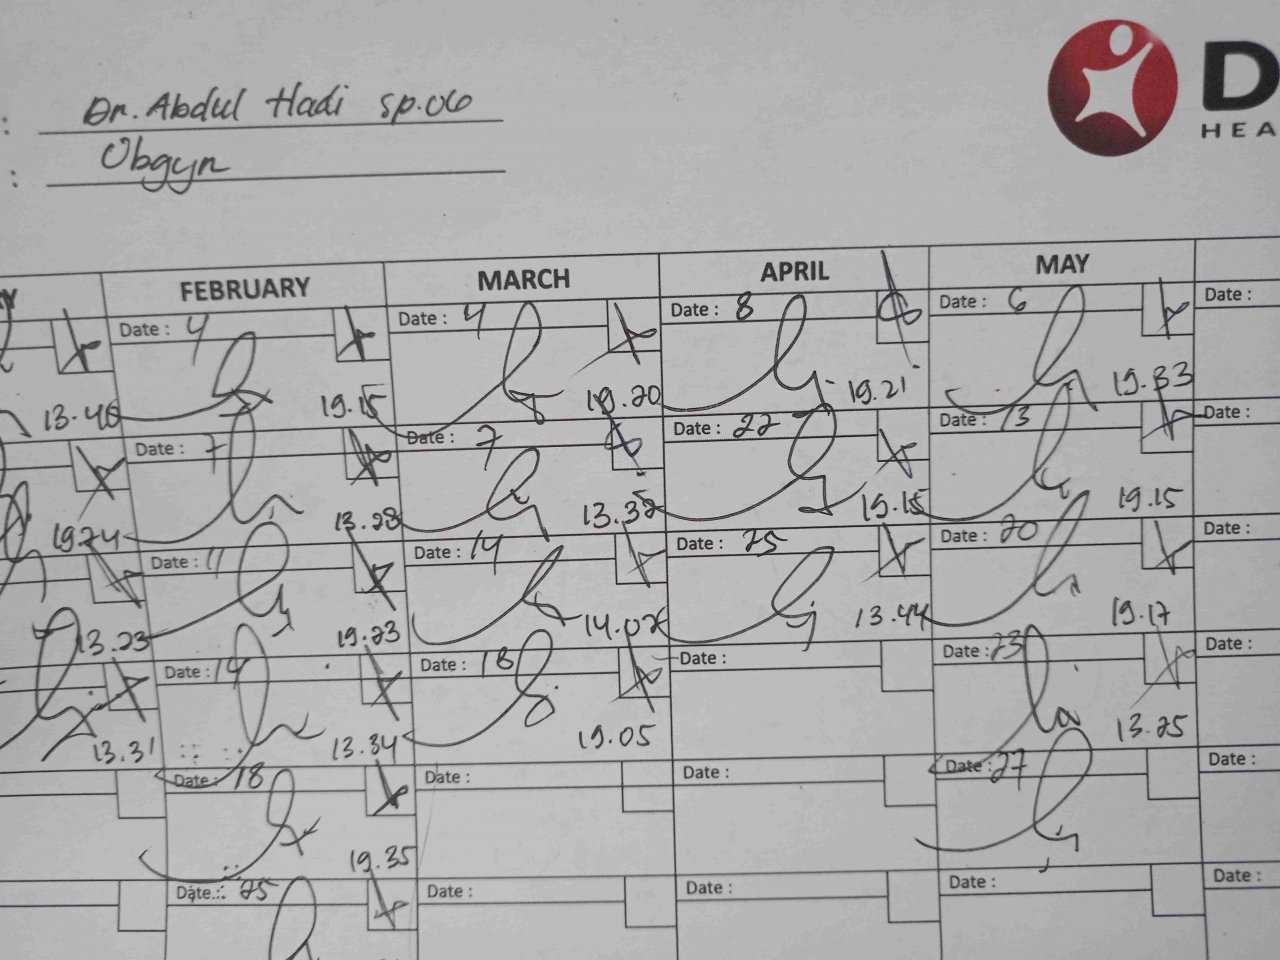 : Dr. Abdul Hadi sp.OG
: Obgyn
D
HEA
Y FEBRUARY MARCH APRIL MAY
Date : 4 Date : 4 Date : 8 Date : 6 Date :
13.46 19.15 19.20 19.21 19.33
Date : 7 Date : 7 Date : 22 Date : 13 Date :
19.24 13.28 13.38 19.15 19.15
Date : 11 Date : 14 Date : 25 Date : 20 Date :
13.23 19.23 14.02 13.44 19.17
Date : 14 Date : 18 Date : Date : 23 Date :
13.31 13.34 19.05 13.25
Date : 18 Date : Date : Date : 27 Date :
19.35
Date : 25 Date : Date : Date : Date :